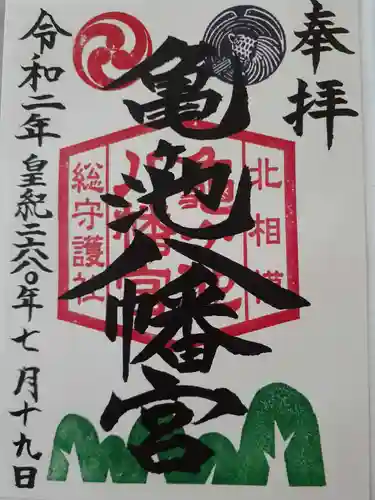 奉拝
亀池八幡宮
北相模
総守護社
令和二年皇紀二六八〇年七月十九日